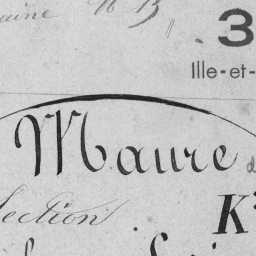 aine N B
3
Ille-et-
Maure d
Section
K